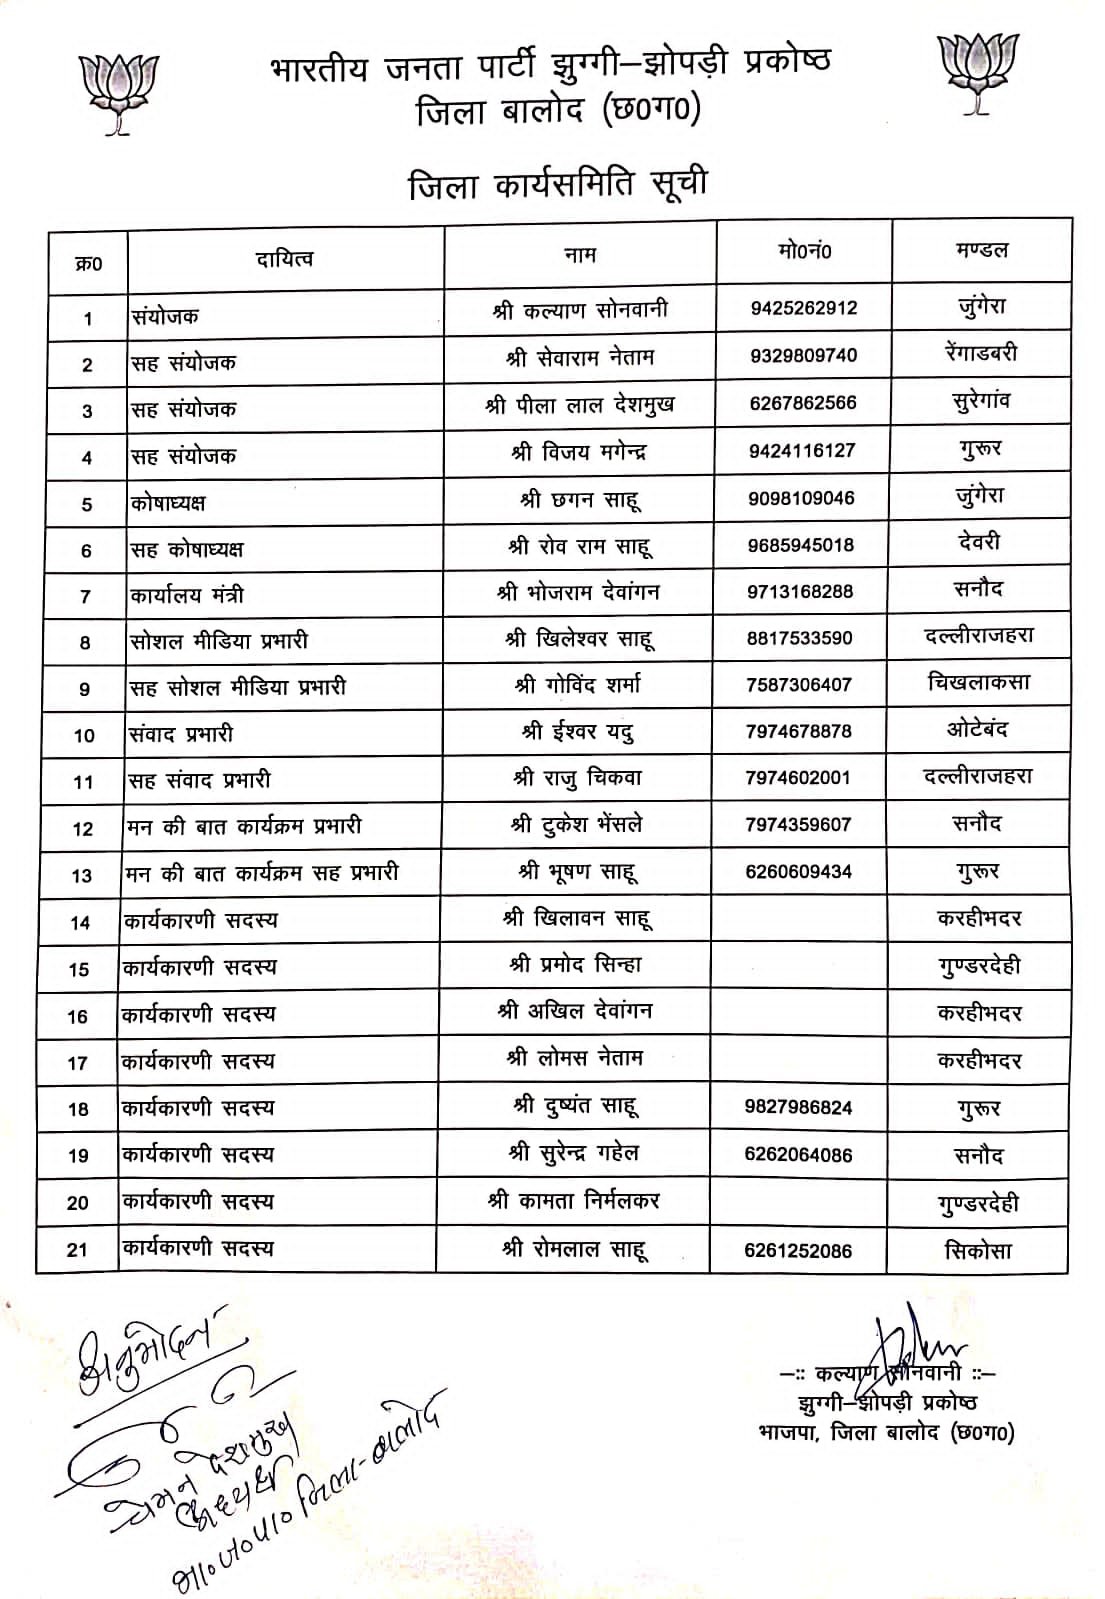 भारतीय जनता पार्टी झुग्गी–झोपड़ी प्रकोष्ठ
जिला बालोद (छ0ग0)
जिला कार्यसमिति सूची
क्र0 दायित्व नाम मो0नं0 मण्डल
1 संयोजक श्री कल्याण सोनवानी 9425262912 जुंगेरा
2 सह संयोजक श्री सेवाराम नेताम 9329809740 रेंगाडबरी
3 सह संयोजक श्री पीला लाल देशमुख 6267862566 सुरेगांव
4 सह संयोजक श्री विजय मगेन्द्र 9424116127 गुरूर
5 कोषाध्यक्ष श्री छगन साहू 9098109046 जुंगेरा
6 सह कोषाध्यक्ष श्री रोव राम साहू 9685945018 देवरी
7 कार्यालय मंत्री श्री भोजराम देवांगन 9713168288 सनौद
8 सोशल मीडिया प्रभारी श्री खिलेश्वर साहू 8817533590 दल्लीराजहरा
9 सह सोशल मीडिया प्रभारी श्री गोविंद शर्मा 7587306407 चिखलाकसा
10 संवाद प्रभारी श्री ईश्वर यदु 7974678878 ओटेबंद
11 सह संवाद प्रभारी श्री राजु चिकवा 7974602001 दल्लीराजहरा
12 मन की बात कार्यक्रम प्रभारी श्री टुकेश भेंसले 7974359607 सनौद
13 मन की बात कार्यक्रम सह प्रभारी श्री भूषण साहू 6260609434 गुरूर
14 कार्यकारणी सदस्य श्री खिलावन साहू करहीभदर
15 कार्यकारणी सदस्य श्री प्रमोद सिन्हा गुण्डरदेही
16 कार्यकारणी सदस्य श्री अखिल देवांगन करहीभदर
17 कार्यकारणी सदस्य श्री लोमस नेताम करहीभदर
18 कार्यकारणी सदस्य श्री दुष्यंत साहू 9827986824 गुरूर
19 कार्यकारणी सदस्य श्री सुरेन्द्र गहेल 6262064086 सनौद
20 कार्यकारणी सदस्य श्री कामता निर्मलकर गुण्डरदेही
21 कार्यकारणी सदस्य श्री रोमलाल साहू 6261252086 सिकोसा
अनुमोदन
चेमन देशमुख
अध्यक्ष
भा०ज०पा० जिला-बालोद
–:: कल्याण सोनवानी ::–
झुग्गी–झोपड़ी प्रकोष्ठ
भाजपा, जिला बालोद (छ0ग0)